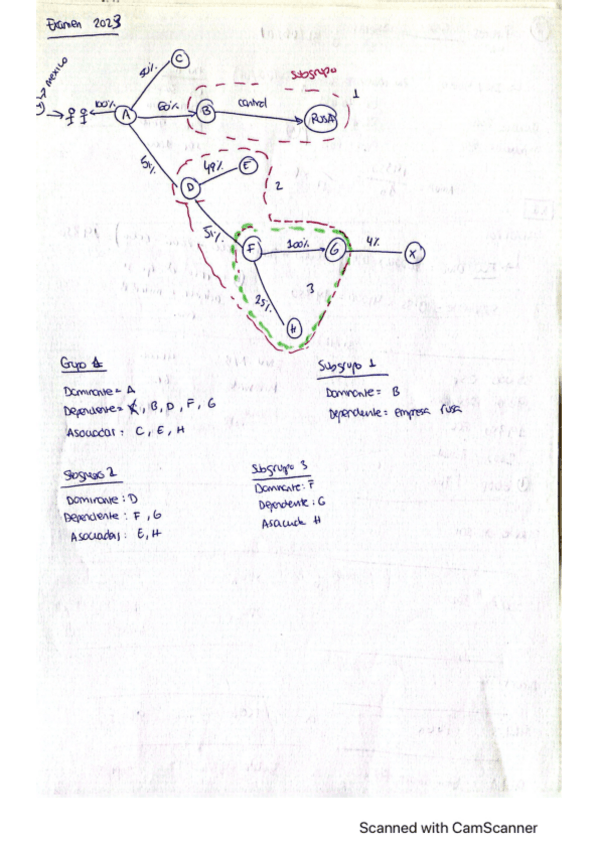 Examen 2023
MEXICO
C
41%
Subgrupo
1
100%
A
60%
B
control
RUSA
51%
49%
E
D
2
51%
F
100%
G
4%
X
25%
3
H
Grupo A
Dominante = A
Dependente = , B, D, F, G
Asociadas: C, E, H
Subgrupo 1
Dominante = B
Dependiente = empresa rusa
Subgrupo 2
Dominante: D
Dependiente: F, G
Asociadas: E, H
Subgrupo 3
Dominante: F
Dependiente: G
H
Scanned with CamScanner